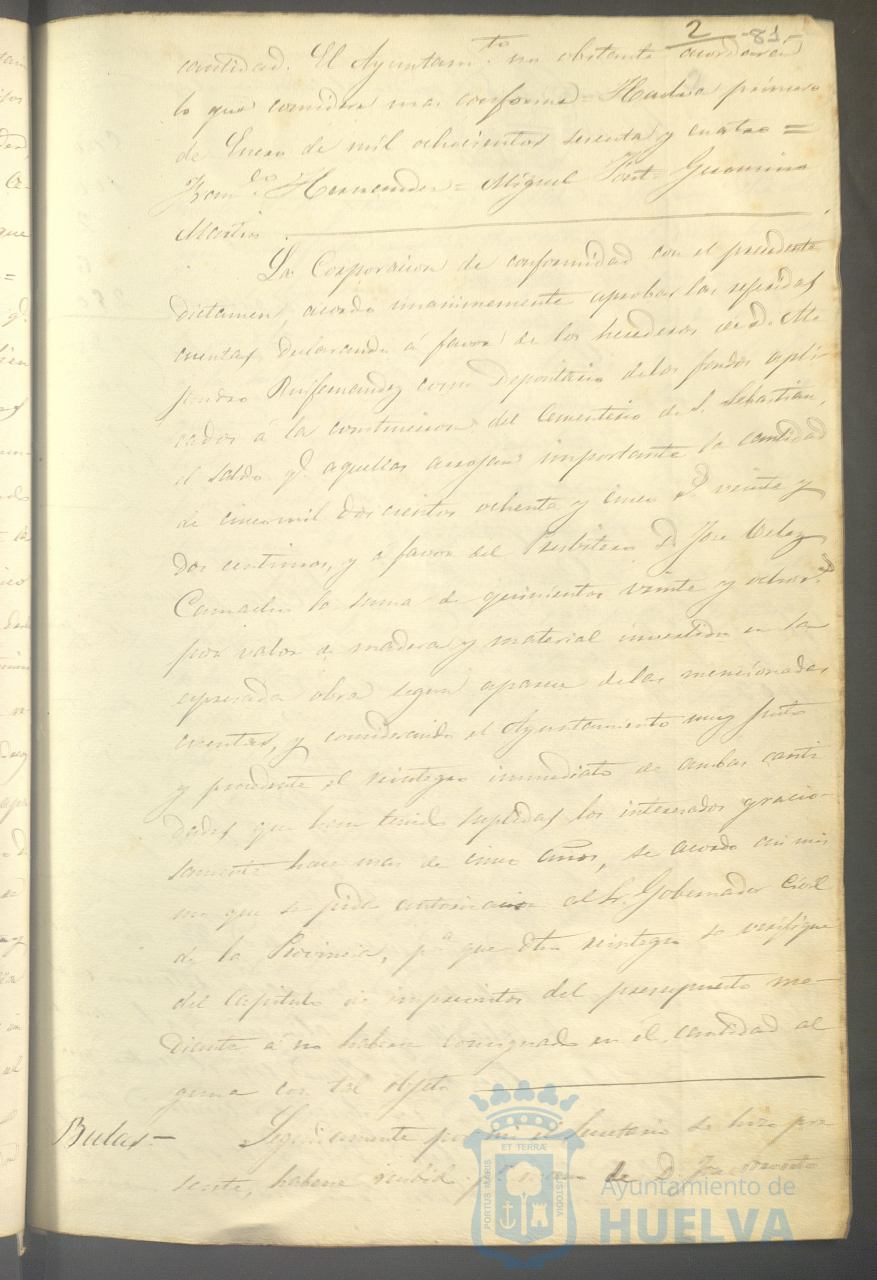 2 -81-
cantidad. El Ayuntam.to no obstante acordará
lo que considere mas conforme = Huelva primero
de Enero de mil ochocientos sesenta y cuatro =
Fran.co Hernandez = Miguel Font = Guarnino
Martin
La Corporacion de conformidad con el precedente
dictamen, acordó unanimemente aprobar las referidas
cuentas, declarando á favor de los herederos de D. Ale
jandro Ruifernandez como Depositario de los fondos apli-
cados á la construccion del Cementerio de S. Sebastian,
el saldo q.e aquellas arrojan importante la cantidad
de cinco mil doscientos ochenta y cinco r.s veinte y
dos centimos, y á favor del Presbitero D. Jose Velez
la suma de quinientos veinte y ocho r.s
por valor de madera y material invertido en la
espresada obra segun aparece de las mencionadas
cuentas, y considerando el Ayuntamiento muy justo
y procedente el reintegro inmediato de ambas canti
dades que han tenido suplidas los interesados gracio-
samente hace mas de cinco años, se acordó asi mis
mo que se pida autorizacion al Sr. Gobernador Civil
de la Provincia, p.a que dho reintegro se verifique
del Capitulo de imprevistos del presupuesto me-
diante á no haberse consignado en él cantidad al
guna con tal objeto
Bulas- Seguidamente por mi el Secretario se hizo pre
sente, haberse recibido p.r mano de D. Jose
PORTUS MARIS ET TERRÆ CUSTODIA
Ayuntamiento de
HUELVA